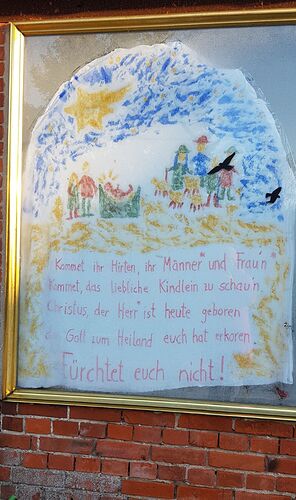 Kommet ihr Hirten, ihr Männer und Frau'n
Kommet, das liebliche Kindlein zu schau'n
Christus, der Herr ist heute geboren
den Gott zum Heiland euch hat erkoren.
Fürchtet euch nicht!